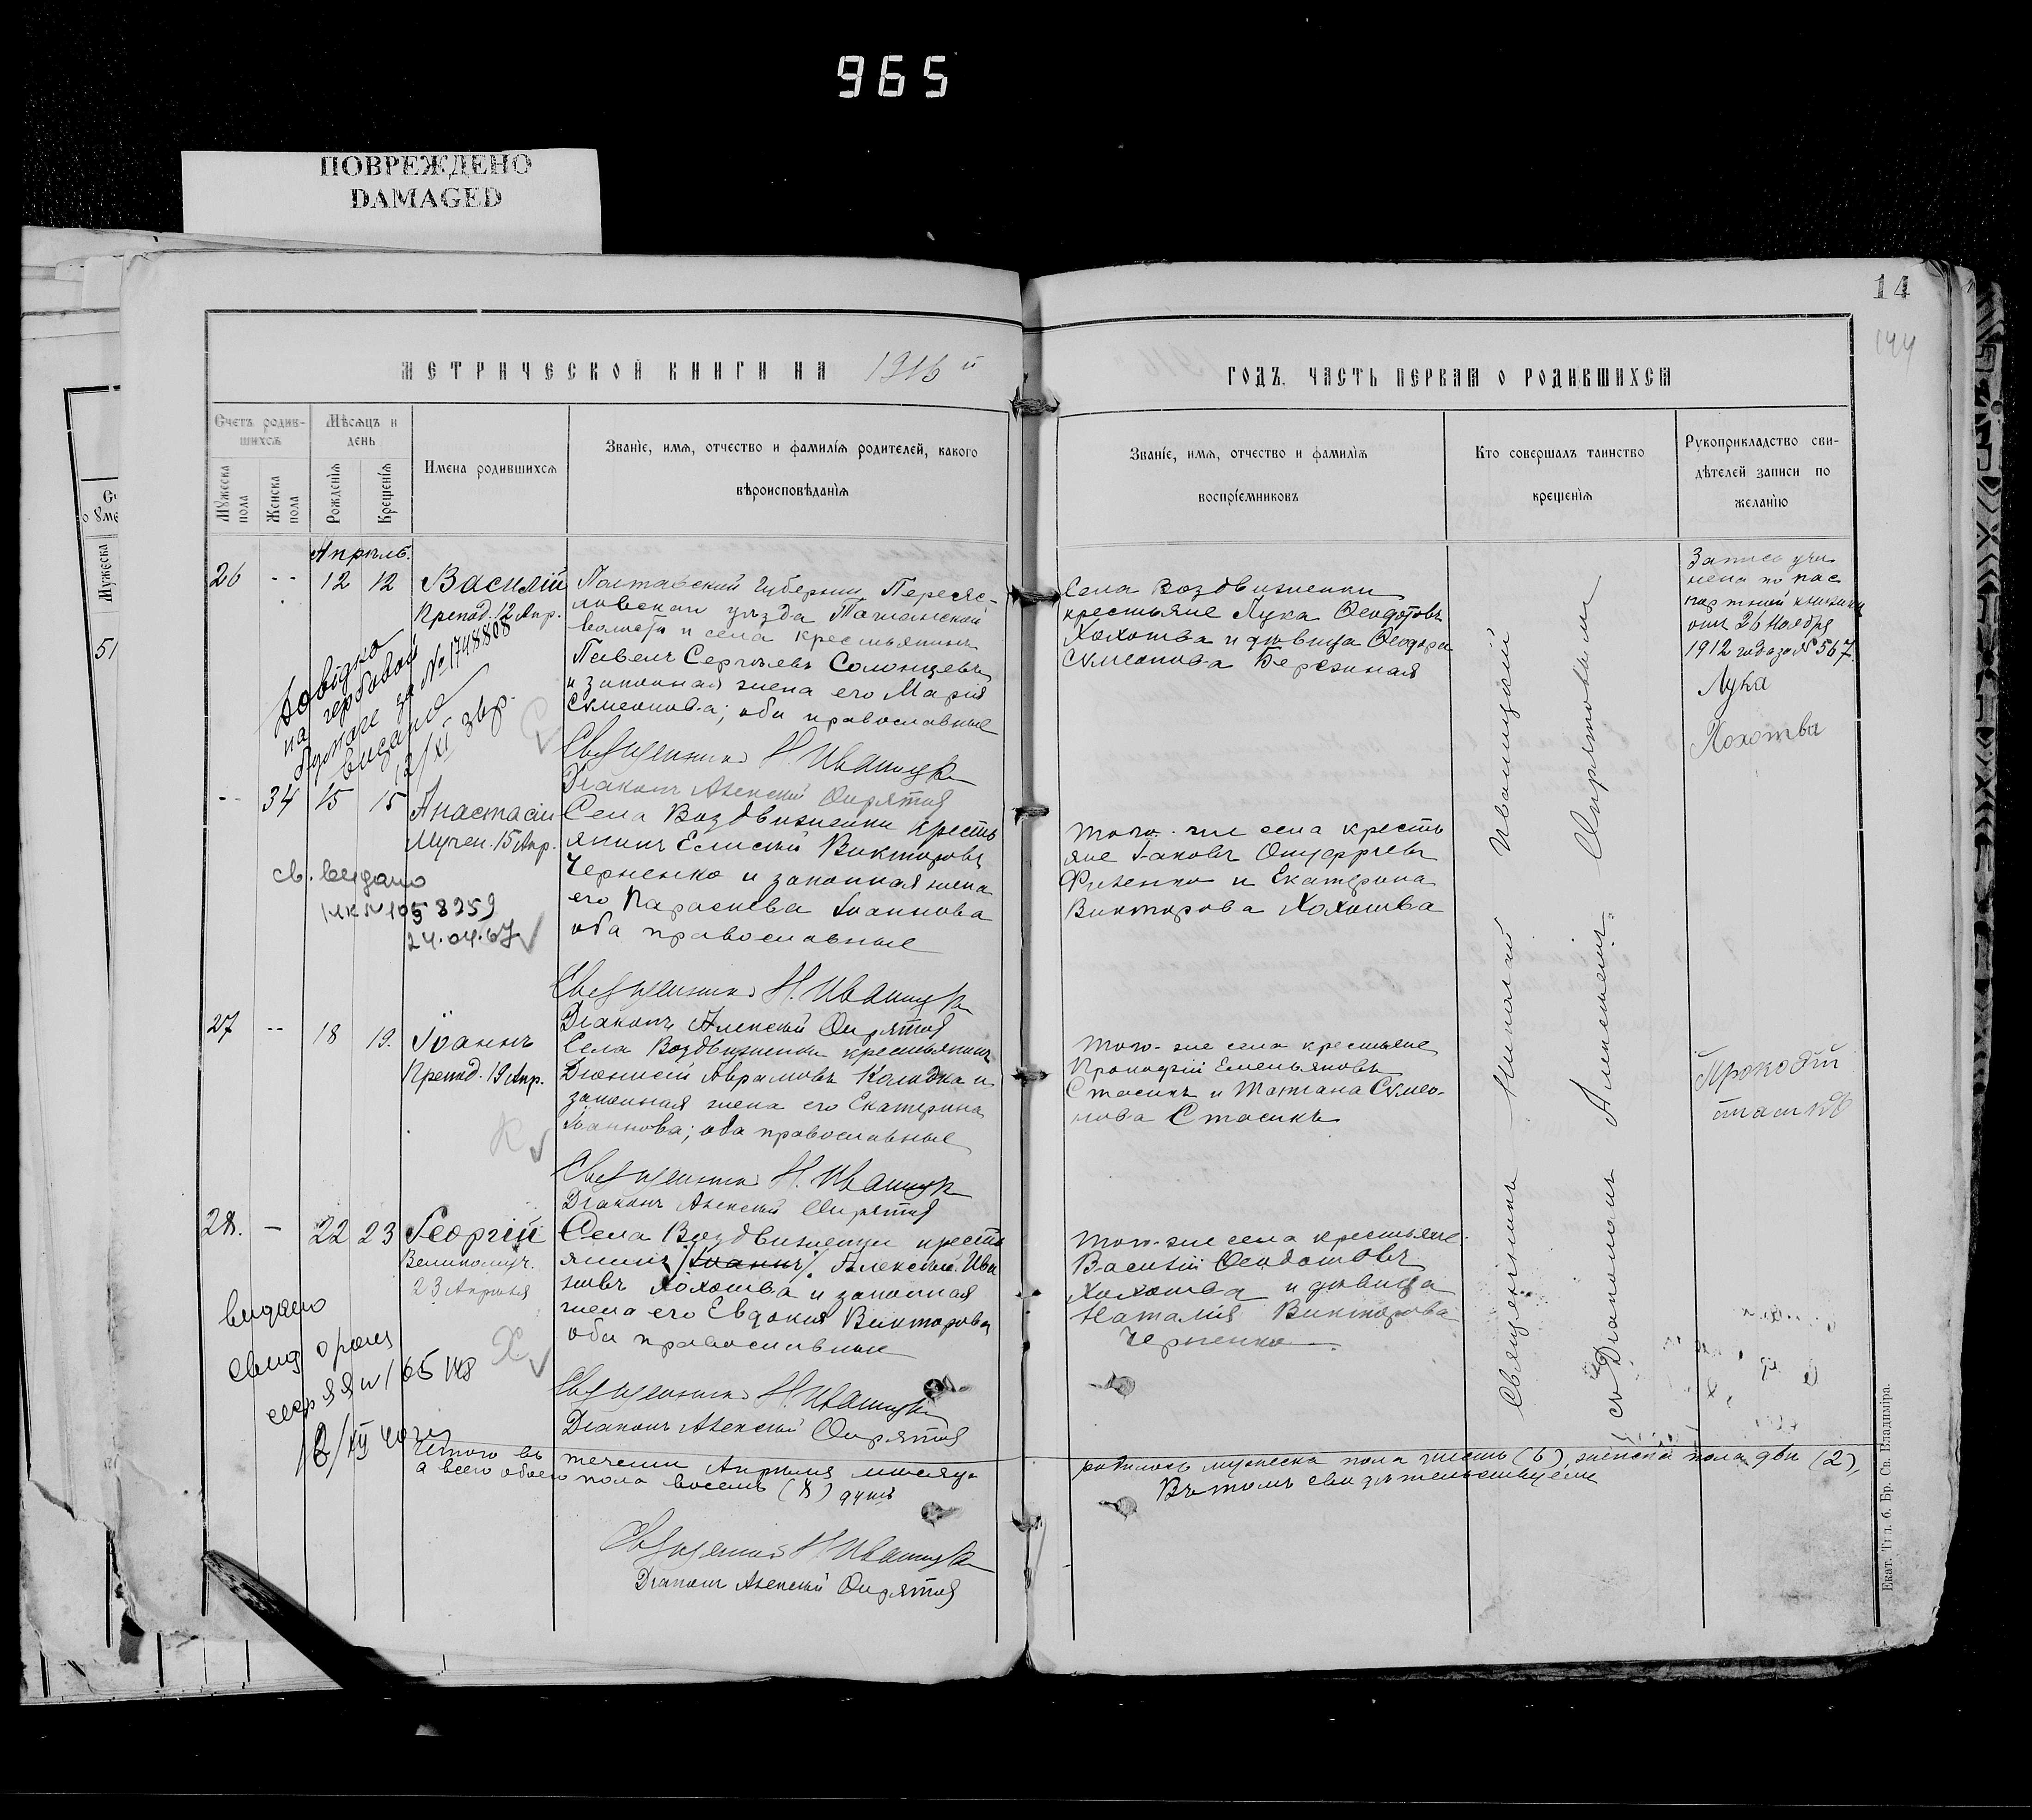 965
ПОВРЕЖДЕНО
DAMAGED
14
144
МЕТРИЧЕСКОЙ КНИГИ НА 1916 й
ГОДЪ, ЧАСТЬ ПЕРВАЯ О РОДИВШИХСЯ
Счетъ родив-
шихся
Мѣсяцъ и
день
Мужеска
пола
Женска
пола
Рожденія
Крещенія
Имена родившихся
Званіе, имя, отчество и фамилія родителей, какого
вѣроисповѣданія
Званіе, имя, отчество и фамилія
воспріемниковъ
Кто совершалъ таинство
крещенія
Рукоприкладство сви-
дѣтелей записи по
желанію
Мужеска
51
Апрѣль.
26 -- 12 12 Василій
Препод. 12 Апр.
Полтавской Губерніи, Переяс-
ловскаго уѣзда
волости и села крестьянинъ
Павелъ Сергѣевъ Солонцевъ
и законная жена его Марія
Симеонова; оба православные
Священникъ Н. Иваницкій
Діаконъ Алексій
Села Воздвиженки
крестьяне Лука Ѳеодотовъ
Хохотва и дѣвица Ѳеодора
Симеонова Березиная
Запись учи
нена по пас
портной книжки
отъ 26 Ноября
1912 года за № 567.
Лука
Хохотва
Довідка
на гербовой
бумаге за № 1748808
видана
12/XI
-- 34 15 15 Анастасія
Мучен. 15 Апр.
Села Воздвиженки кресть
янинъ Елисей Викторовъ
Черненко и законная жена
его Параскева Іоаннова
оба православные
Священникъ Н. Иваницкій
Діаконъ Алексій
того-же села кресть
яне Іаковъ Онуфріевъ
и Екатерина
Викторова Хохотва
св. видано
24.04.67
27 -- 18 19. Іоаннъ
Препод. 19 Апр.
Села Воздвиженки крестьянинъ
Діонисій Аврамовъ Колодка и
законная жена его Екатерина
Іоаннова; оба православные
Священникъ Н. Иваницкій
Діаконъ Алексій
того-же села крестьяне
Прокофій Емельяновъ
Стасикъ и Татіана Симео-
нова Стасикъ
К
28. - 22 23 Георгій
Великомуч.
23 Апрѣля
Села Воздвиженки кресть
янинъ /Іоаннъ/ Алексѣй Ива
новъ Хохотва и законная
жена его Евдокія Викторова
оба православные
Священникъ Н. Иваницкій
Діаконъ Алексій
того-же села крестьяне
Василій Ѳеодотовъ
Хохотва и дѣвица
Наталія Викторова
Черненко
видано
Х
Священникъ Николай Иваницкій
съ Діакономъ Алексіемъ
Итого въ теченіи Апрѣля мѣсяца родилось мужеска пола шесть (6), женска пола двѣ (2),
а всего обоего пола восемь (8) душъ Въ томъ свидѣтельствуемъ
Священникъ Н. Иваницкій
Діаконъ Алексій
Екат. Тип. б. Бр. Св. Владиміра.